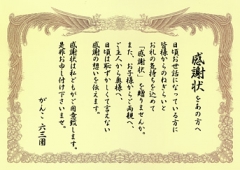 感謝状をあの方へ
日頃お世話になっている方に
皆様からのねぎらいと
お礼の気持ちを込めて
「感謝状」を贈りませんか。
また、お子様からご両親へ、
ご主人から奥様へ、
日頃は恥ずかしくて言えない
感謝の想いを伝えます。
感謝状は私どもがご用意致します。
是非お申し付け下さいませ。
がんこ 六三園